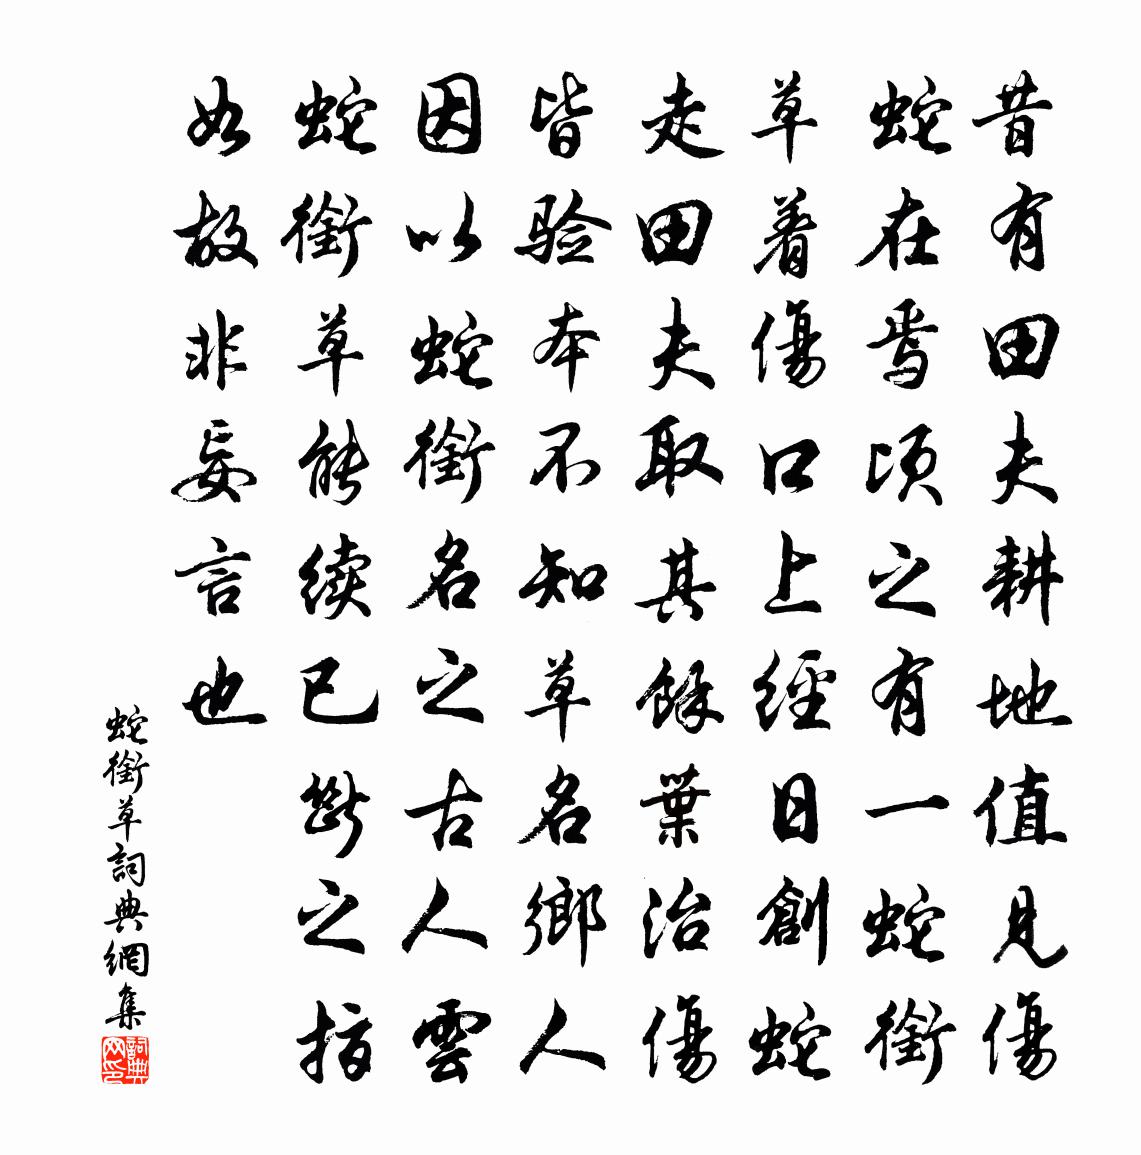 昔有田夫耕地值見傷
蛇在焉頃之有一蛇銜
草着傷口上經日創蛇
走田夫取其餘葉治傷
皆验本不知草名鄉人
因以蛇銜名之古人雲
蛇銜草能续已斷之指
如故非妄言也
蛇銜草詞典網集
詞典网印